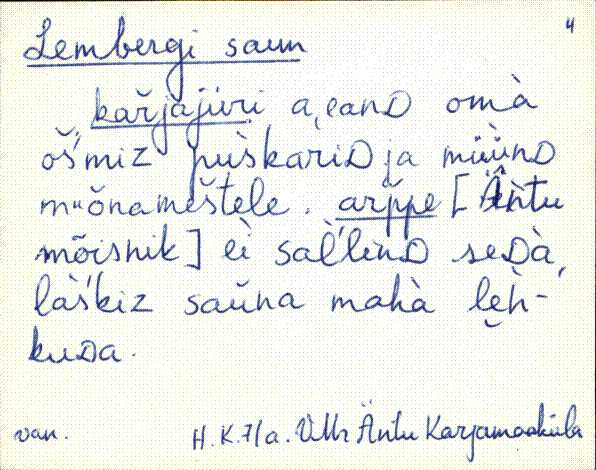 4
Lembergi saun
kar̆jajüri a̭eanᴅ omà
oš́miz pùskariᴅ ja müùnᴅ
mᵘŏnameštele. ar̆ppe [Äǹtu
mõisnik] eì sal̆'linᴅ seᴅà,
làs̆kiz saŭna mahà lĕh-
kuᴅa.
van. H. K. 71a. VMr Äntu Karjamaaküla